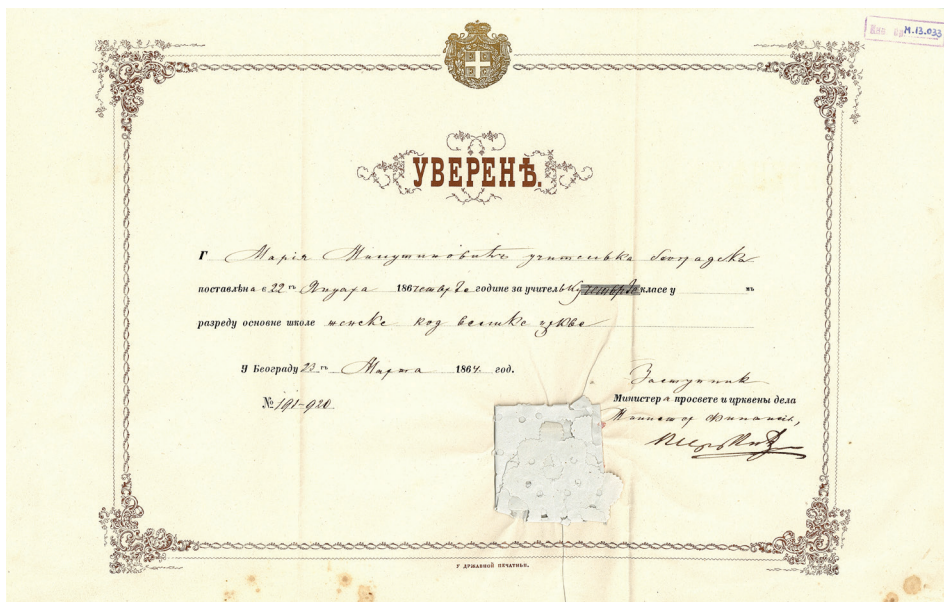 Инв. бр. М.13.033
УВЕРЕНѢ.
Г Маріа Милутиновићъ учителька београдска
поставлѣна є 22 гъ Януара 1864 године за учительку класе у нъ
разреду основне школе женске код велике цркве
У Београду 23 гъ Марта 1864. год.
№ 191-920
Заступник
Министер а просвете и цркве­ны дела
Министер Финансіє,
У ДРЖАВНОЙ ПЕЧАТНЬИ.